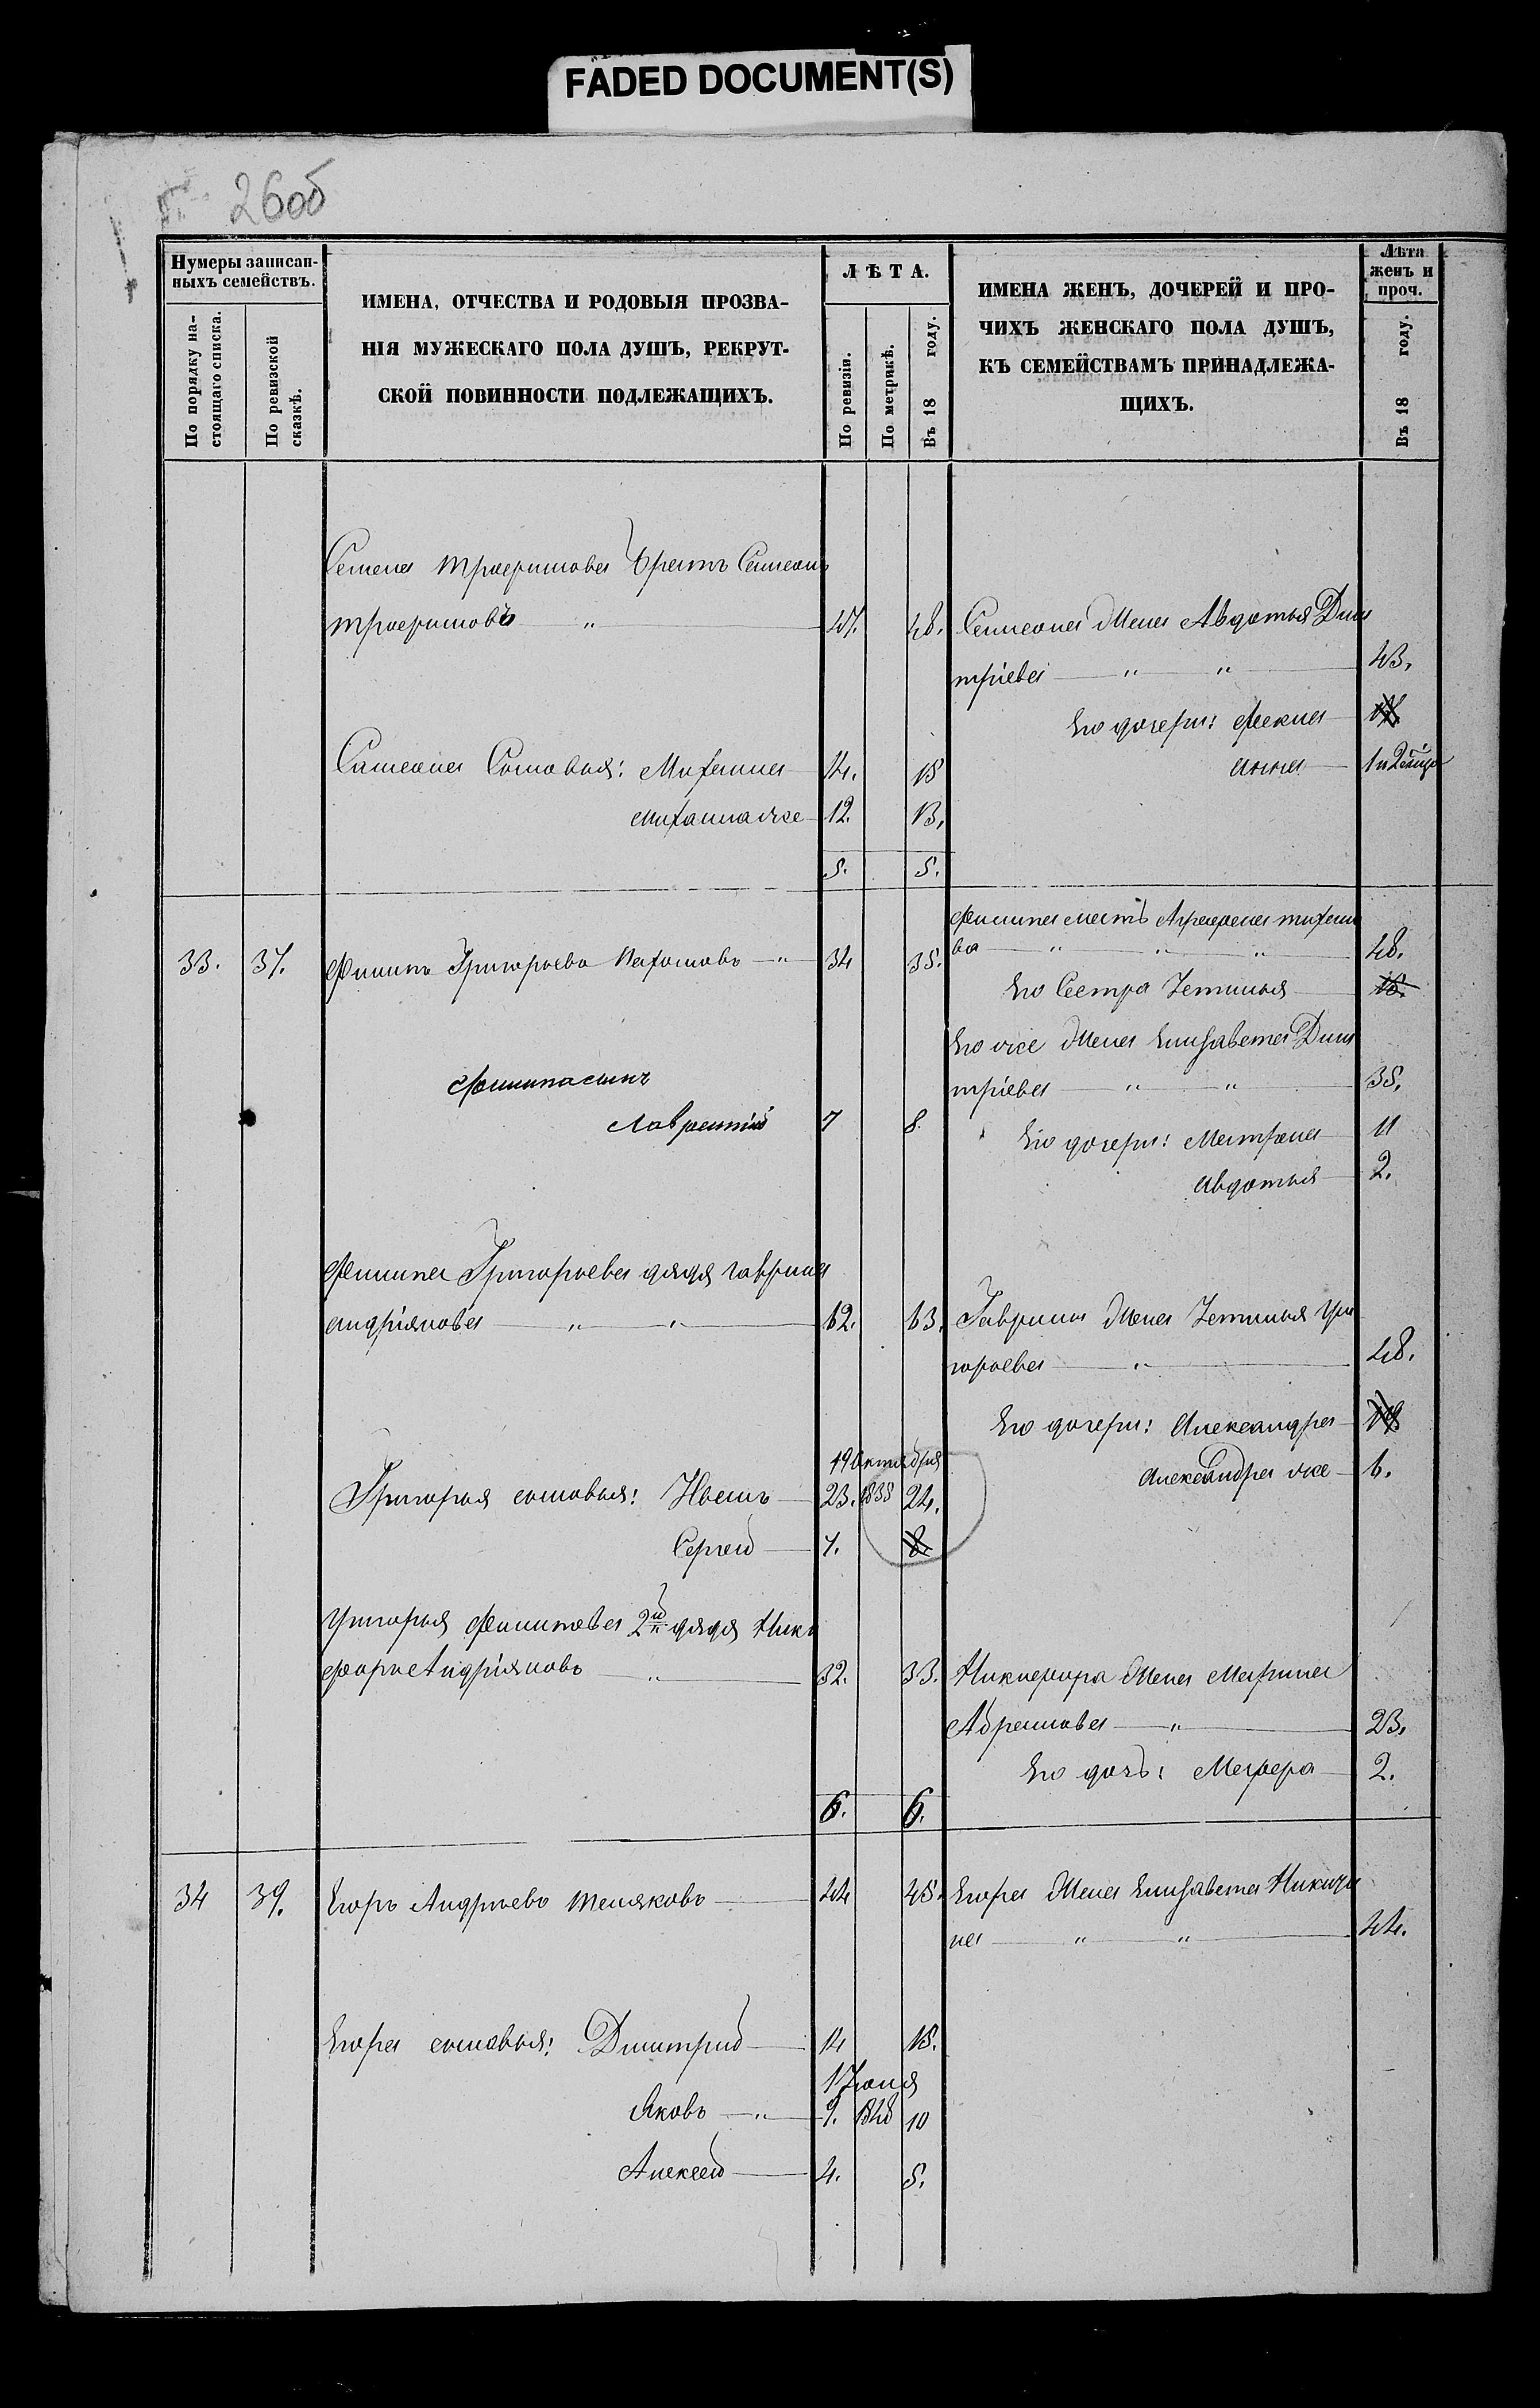 FADED DOCUMENT(S)
26об
Нумеры записан-
ныхъ семействъ.
По порядку на-
стоящаго списка.
По ревизской
сказкѣ.
ИМЕНА, ОТЧЕСТВА И РОДОВЫЯ ПРОЗВА-
НІЯ МУЖЕСКАГО ПОЛА ДУШЪ, РЕКРУТ-
СКОЙ ПОВИННОСТИ ПОДЛЕЖАЩИХЪ.
ЛѢТА.
По ревизіи.
По метрикѣ.
Въ 18 году.
ИМЕНА ЖЕНЪ, ДОЧЕРЕЙ И ПРО-
ЧИХЪ ЖЕНСКАГО ПОЛА ДУШЪ,
КЪ СЕМЕЙСТВАМЪ ПРИНАДЛЕЖА-
ЩИХЪ.
Лѣта
женъ и
проч.
Въ 18 году.
Семена Трофимова братъ Симеонъ
Трофимовъ " 47. 48. Симеона жена Авдотья Дми
тріева " " 43.
Его дочери: Фекла
Анна
Симеона Сыновья: Михаила 14. 15
Михаила же 12. 13.
5. 5.
Филипа мать Аграфена
ва " " " 48.
33. 37. Филипъ Григорьевъ " 34 35.
Его Сестра Устинья
Его же жена Елизавета Дми
тріева " " 35.
Филипа сынъ
Лаврентій 7 8.
Его дочери: Матрена 11
Авдотья 2.
Филипа Григорьева дядя Гаврила
Андріяновъ " " 62. 63. Гаврилы жена Устинья Гри
горьева " 48.
Его дочери: Александра
19 октября
Александра же 6.
Григорья сыновья: Иванъ 23. 1835 24.
Сергей 7. 8.
Григорья Филипова 2й дядя Ники
форъ Андріяновъ " 32. 33. Никифора жена Марина
Абрамова " 23.
Его дочь: Марфера 2.
6. 6.
34 39. Егоръ Андреевъ 44 45. Егора жена Елизавета Никити
на " " 44.
Егора сыновья: Дмитрий 14 15.
1 Июня
Яковъ " 9. 1848 10
Алексей 4. 5.